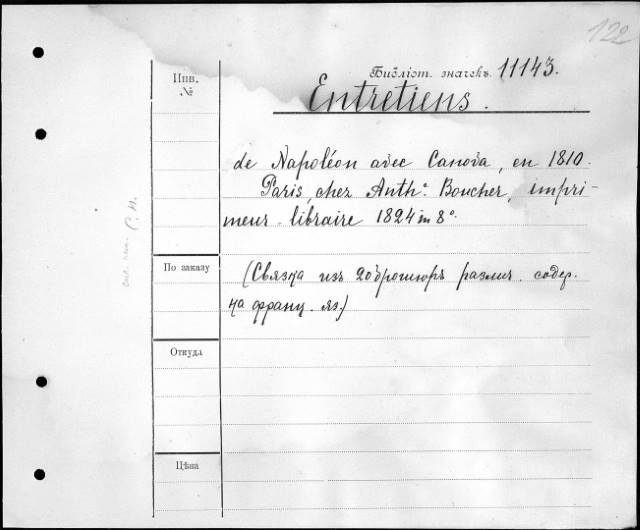 122
Библіот. значекъ 11143.
Инв.
№
Entretiens.
de Napoléon avec Canova, en 1810.
Paris, chez Anth.e Boucher, impri-
meur-libraire 1824 in 8°.
По заказу
(Связка изъ 20 брошюръ различ. содер.
на франц. яз.)
Откуда
Цѣна